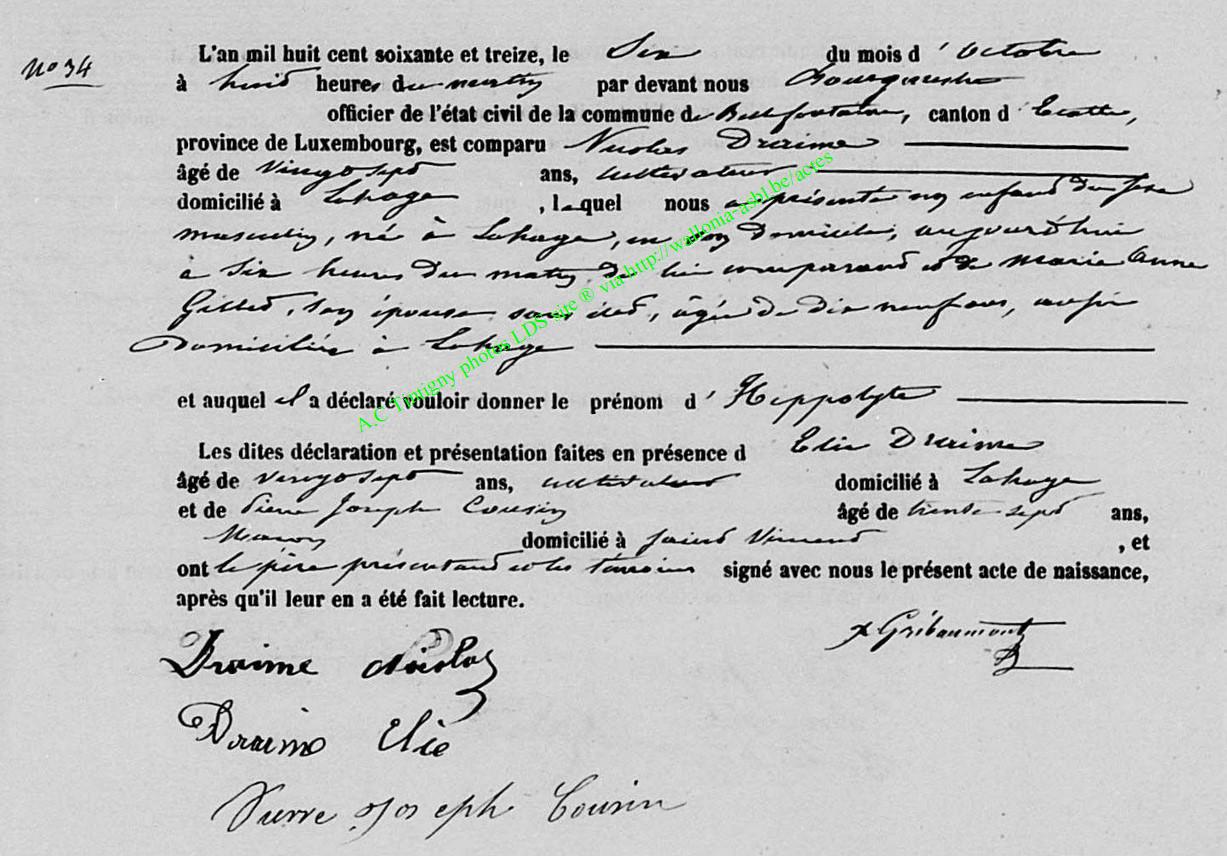 No 34
L'an mil huit cent soixante et treize, le Six du mois d'Octobre
à huit heures du matin par devant nous Bourgmestre
officier de l'état civil de la commune de Bellefontaine, canton d'Etalle,
province de Luxembourg, est comparu Nicolas Draime
âgé de Vingt sept ans, cultivateur
domicilié à Lahage, lequel nous a présenté un enfant du sexe
masculin, né à Lahage, en son domicile, aujourd'hui
à six heures du matin, de lui comparant et de Marie Anne
Gillet, son épouse, sans état, âgée de dix neuf ans, aussi
Domiciliée à Lahage
et auquel il a déclaré vouloir donner le prénom d'Hippolyte
Les dites déclaration et présentation faites en présence d Elie Draime
âgé de vingt sept ans, cultivateur domicilié à Lahage
et de Pierre Joseph Cousin âgé de trente sept ans,
Maçon domicilié à Saint Vincent, et
ont le père présentant et les témoins signé avec nous le présent acte de naissance,
après qu'il leur en a été fait lecture.
Gribaumont
Draime Nicolas
Draime Elie
Pierre Joseph Cousin
A.C Tintigny photos LDS site ® via http://wallonia-asbl.be/actes